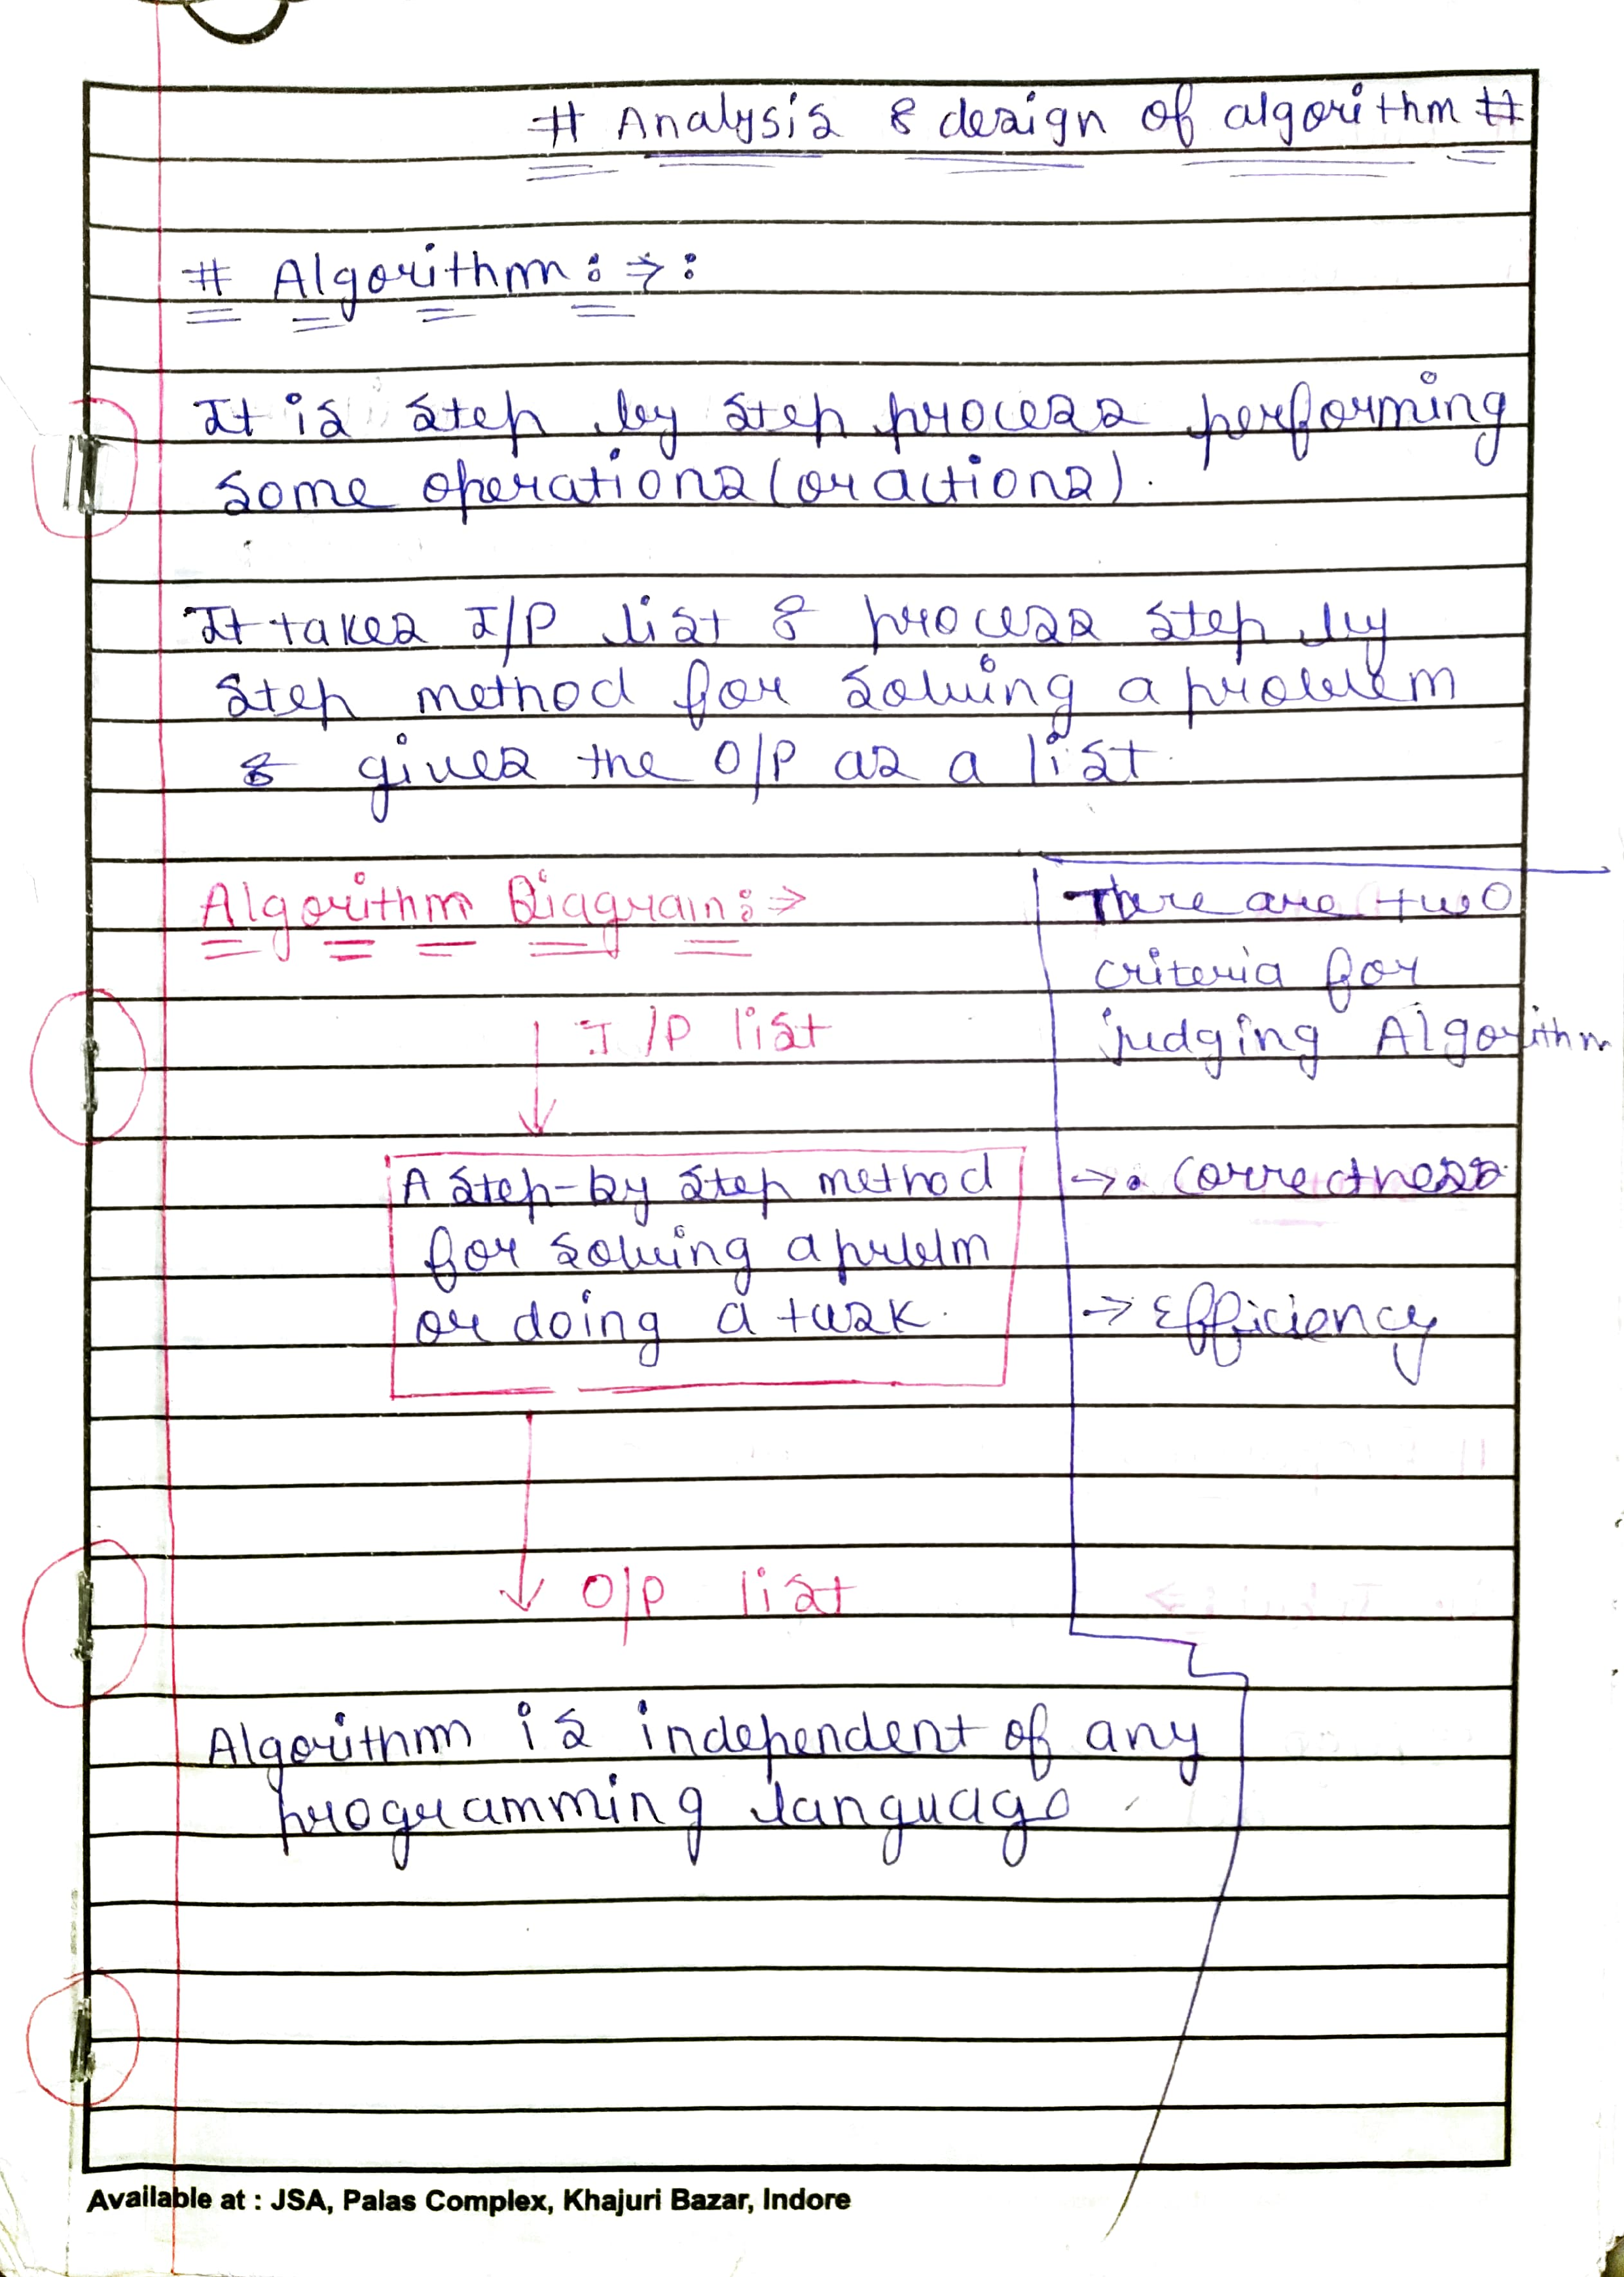 # Analysis & design of algorithm #
# Algorithm : → :
It is step by step process performing
some operations (or actions).
It takes I/P list & process step by
step method for solving a problem
& gives the O/P as a list.
Algorithm Diagram : →
I/P list
A step-by step method
for solving a
or doing a task.
O/P list
There are two
criteria for
judging Algorithm
→ • Correctness
→ Efficiency
Algorithm is independent of any
programming language.
Available at : JSA, Palas Complex, Khajuri Bazar, Indore